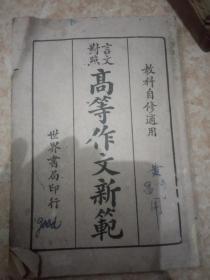 教科自修適用
言文對照
高等作文新範
世界書局印行
good